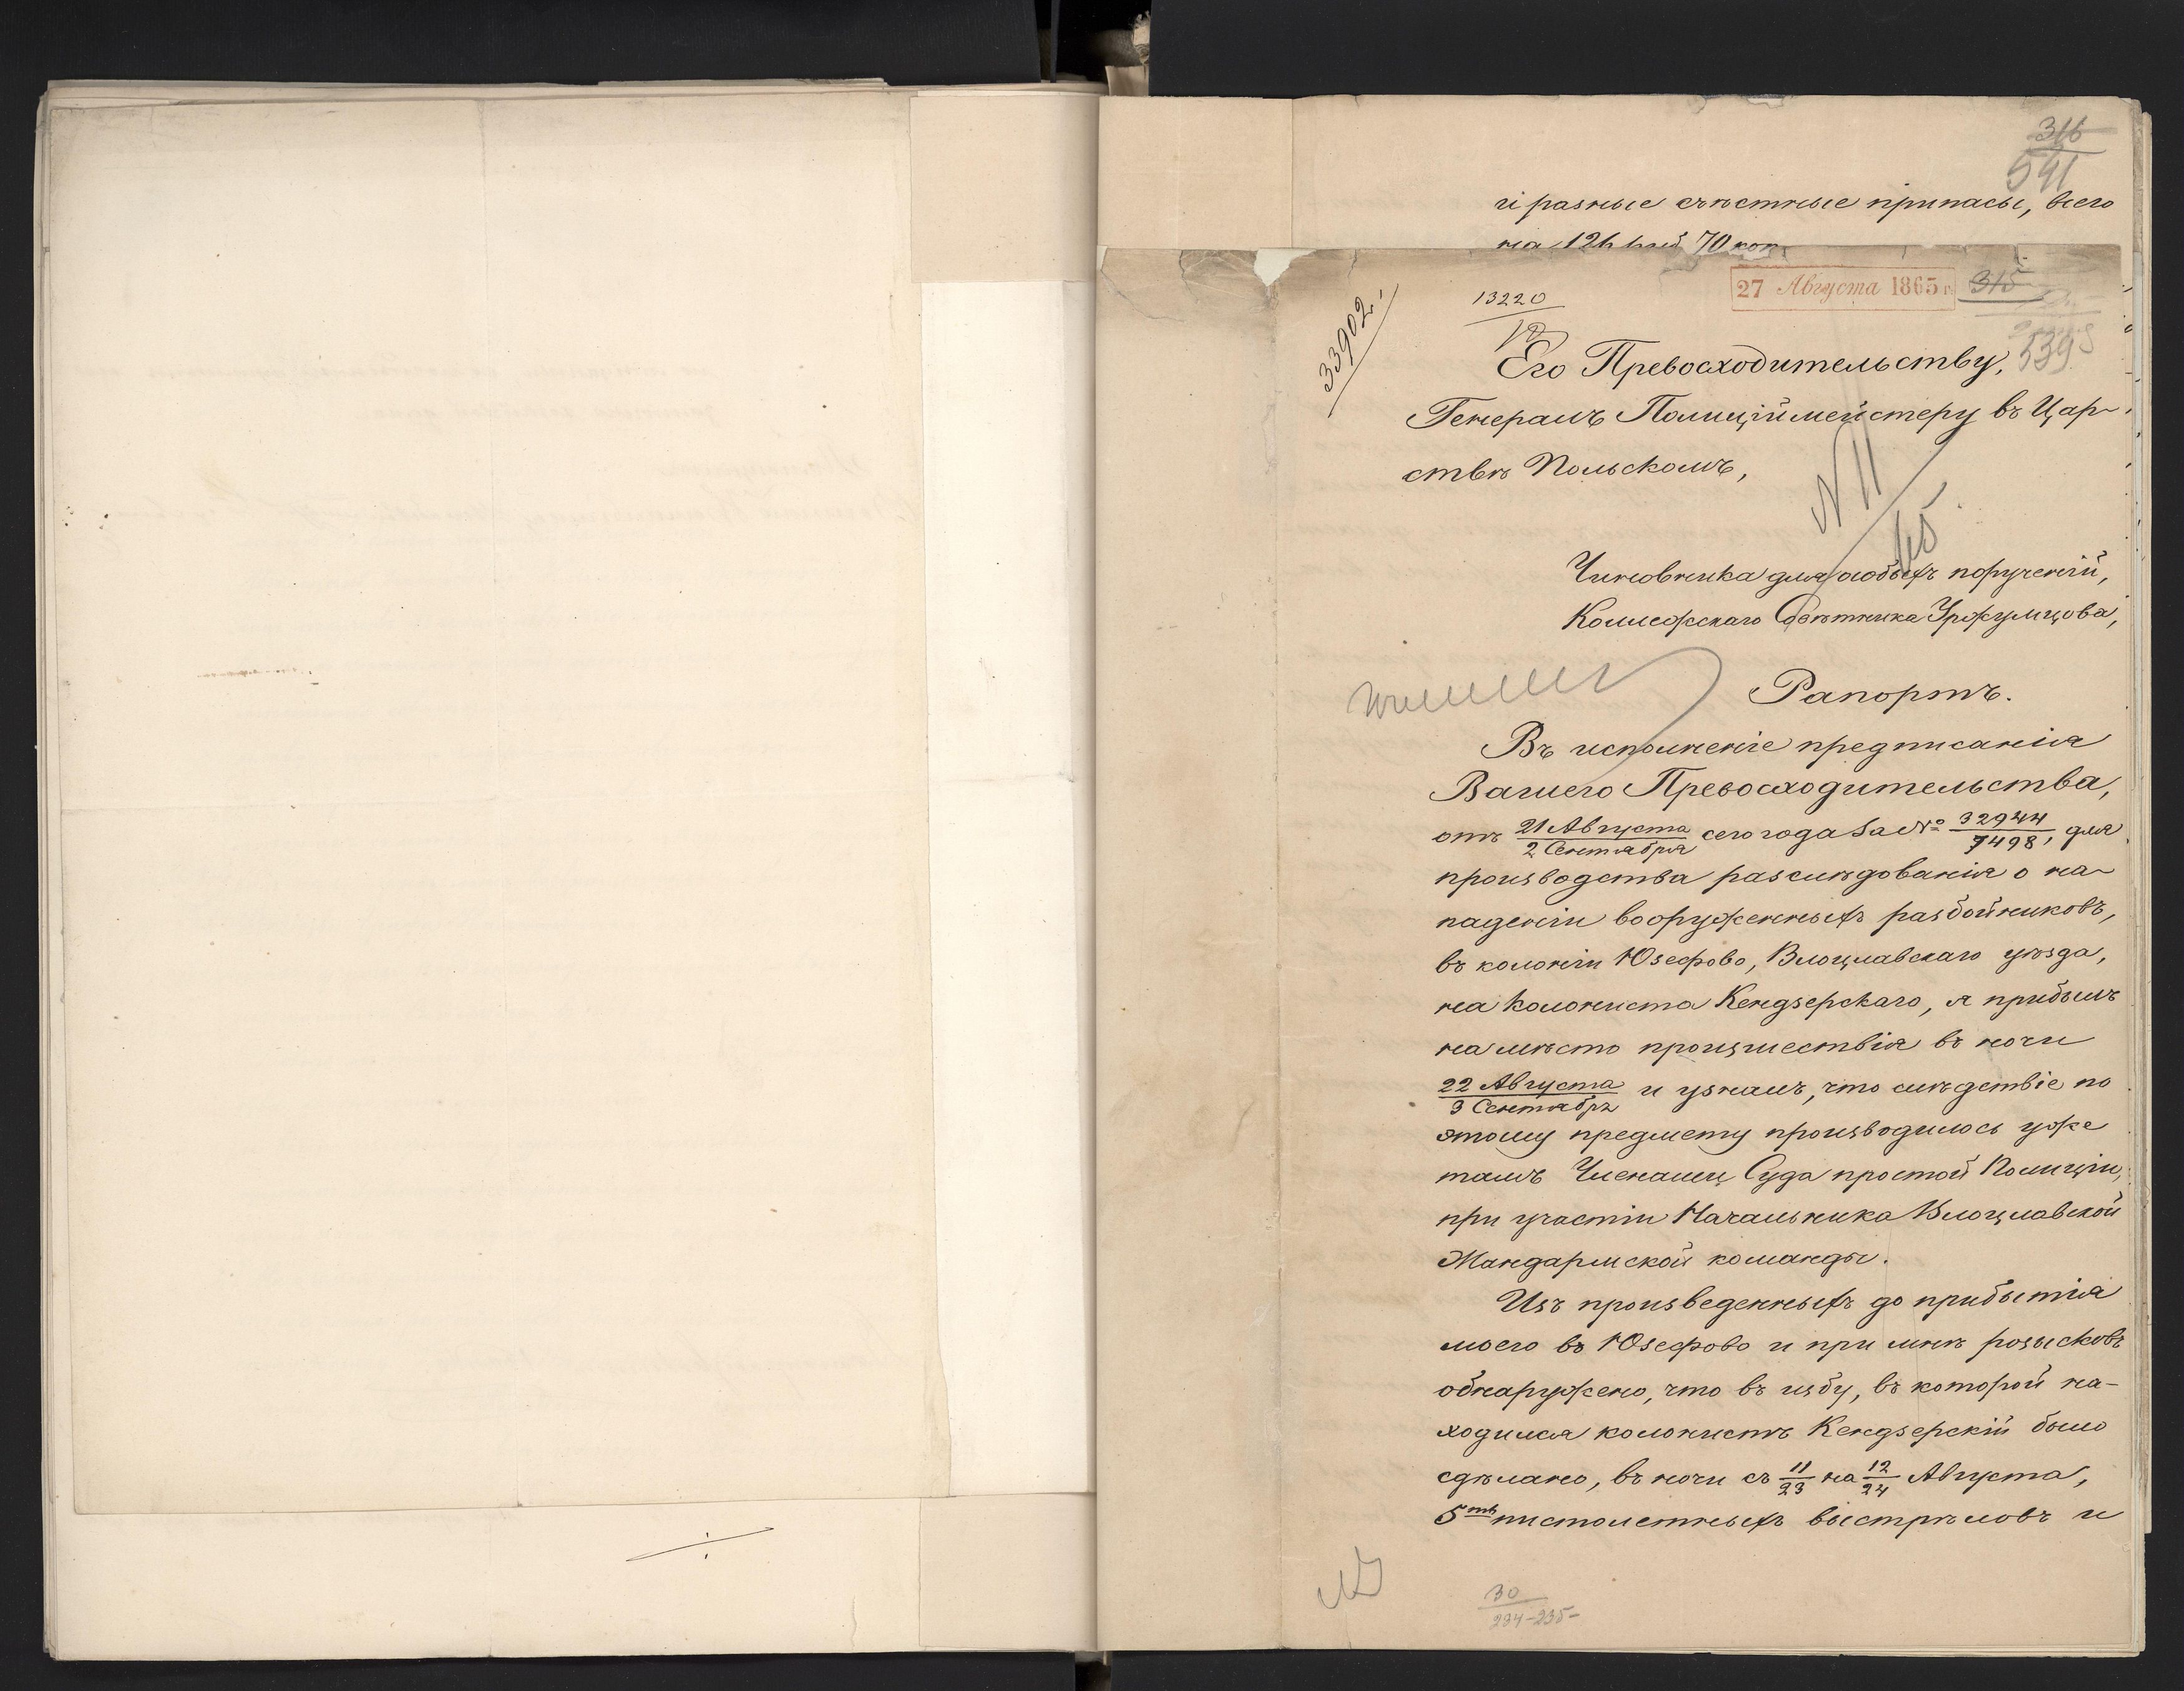 316
541
и разные съѣстные припасы, всего
на 126 руб 70 коп.
27 Августа 1865 г.
315
13220
33902.
539
Его Превосходительству,
Генералъ Полиціймейстеру въ Цар-
ствѣ Польскомъ,
N 11
65
Чиновника для особыхъ порученій,
Коллежскаго Совѣтника Уржумцова,
Рапортъ.
Въ исполненіе предписанія
Вашего Превосходительства,
отъ 21 Августа / 2 Сентября сего года за № 32944 / 7498, для
производства разслѣдованія о на-
паденіи вооруженныхъ разбойниковъ,
въ колоніи Юзефово, Влоцлавскаго уѣзда,
на колониста Кендзерскаго, я прибылъ
на мѣсто произшествія въ ночи
22 Августа / 3 Сентября и узналъ, что слѣдствіе по
этому предмету производилось уже
тамъ Членами Суда простой Полиціи,
при участіи Начальника Влоцлавской
Жандармской команды.
Изъ произведенныхъ до прибытія
моего въ Юзефово и при мнѣ розысковъ
обнаружено, что въ избу, въ которой на-
ходился колонистъ Кендзерскій было
сдѣлано, въ ночи съ 11/23 на 12/24 Августа,
5ть пистолетныхъ выстрѣловъ и
30
234-235-